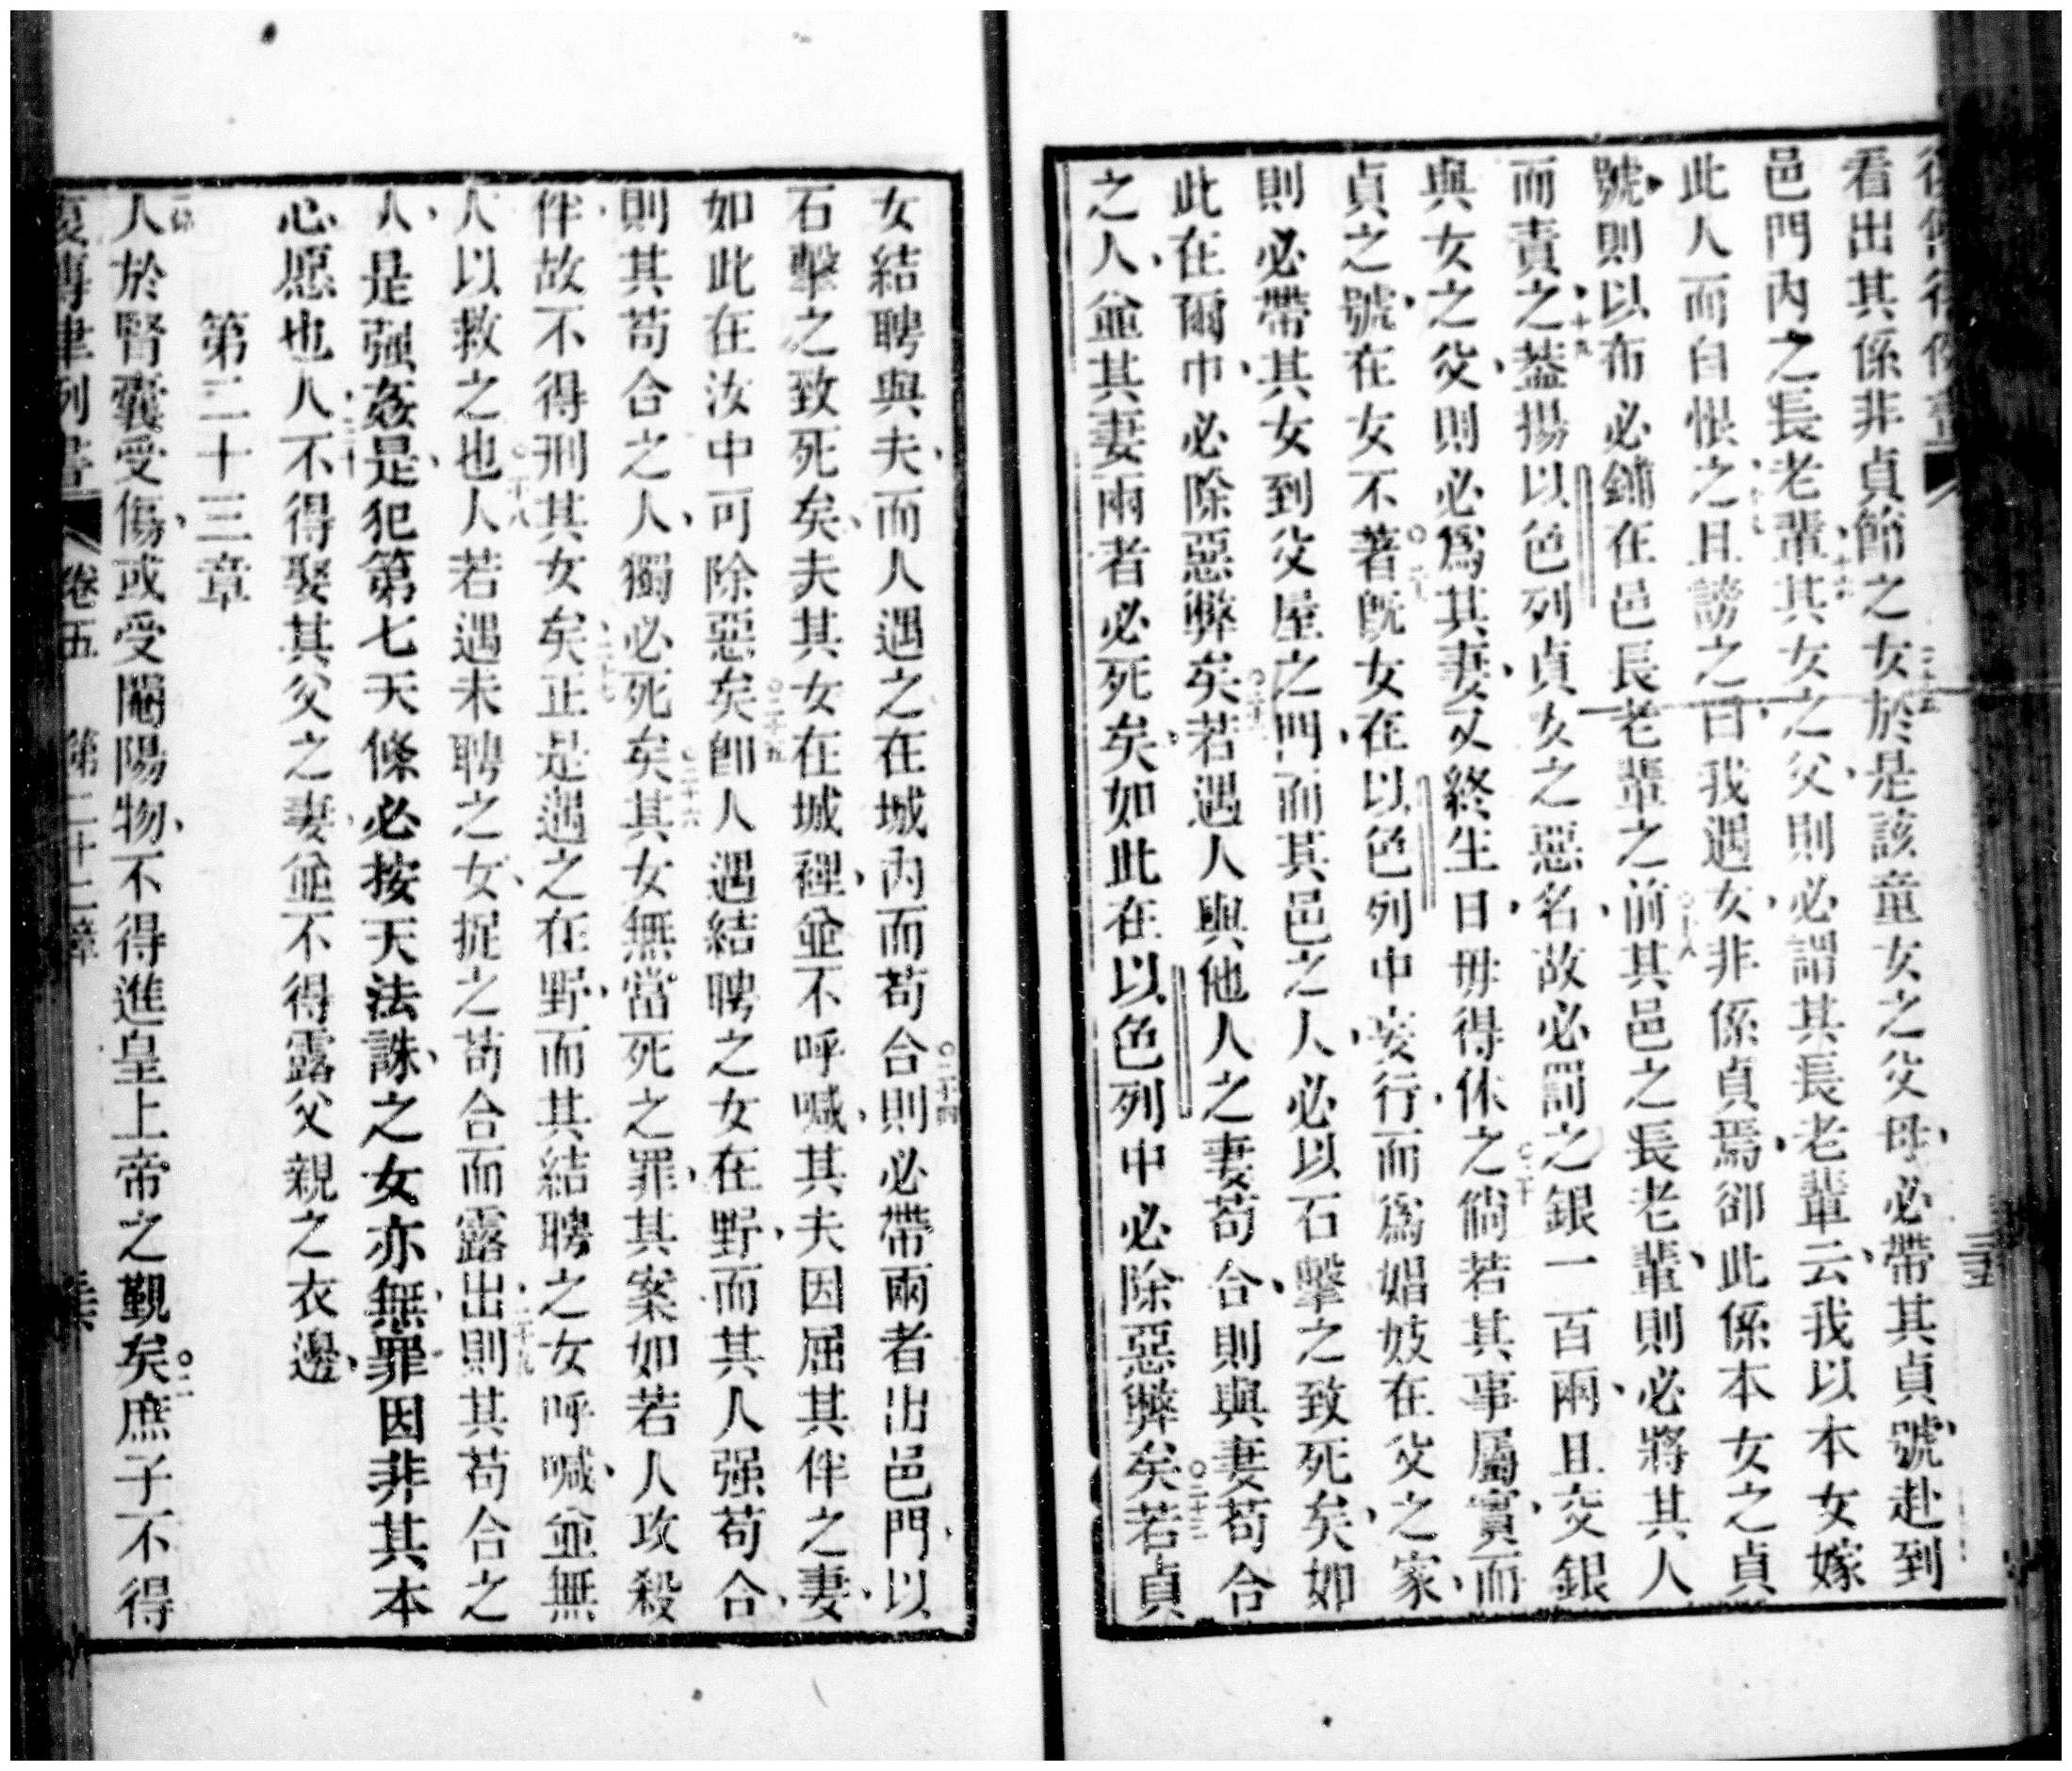 看出其係非貞節之女於是該童女之父母必帶其貞號赴到
邑門內之長老輩其女之父則必謂其長老輩云我以本女嫁
此人而自恨之且謗之曰我遇女非係貞焉卻此係本女之貞
號則以布必鋪在邑長老輩之前其邑之長老輩則必將其人
而責之蓋揚以色列貞女之惡名故必罰之銀一百兩且交銀
與女之父則必爲其妻又終生日毋得休之倘若其事屬實而
貞之號在女不著旣女在以色列中妄行而爲娼妓在父之家
則必帶其女到父屋之門而其邑之人必以石擊之致死矣如
此在爾中必除惡弊矣若遇人與他人之妻苟合則與妻苟合
之人並其妻兩者必死矣如此在以色列中必除惡弊矣若貞
女結聘與夫而人遇之在城內而苟合則必帶兩者出邑門以
石擊之致死矣夫其女在城裡並不呼喊其夫因屈其伴之妻
如此在汝中可除惡矣卽人遇結聘之女在野而其人强苟合
則其苟合之人獨必死矣其女無當死之罪其案如若人攻殺
伴故不得刑其女矣正是遇之在野而其結聘之女呼喊並無
人以救之也人若遇未聘之女捉之苟合而露出則其苟合之
人是强姦是犯第七天條必按天法誅之女亦無罪因非其本
心愿也人不得娶其父之妻並不得露父親之衣邊
第二十三章
人於腎囊受傷或受閹陽物不得進皇上帝之覲矣庶子不得
卷五 第二十二章